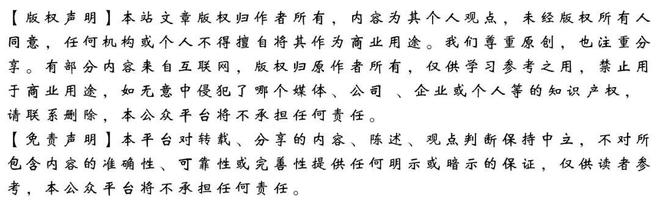 【版权声明】本站文章版权归作者所有，内容为其个人观点，未经版权所有人
同意，任何机构或个人不得擅自将其作为商业用途。我们尊重原创，也注重分
享。有部分内容来自互联网，版权归原作者所有，仅供学习参考之用，禁止用
于商业用途，如无意中侵犯了哪个媒体、公司 、企业或个人等的知识产权，
请联系删除，本公众平台将不承担任何责任。
【免责声明】本平台对转载、分享的内容、陈述、观点判断保持中立，不对所
包含内容的准确性、可靠性或完善性提供任何明示或暗示的保证，仅供读者参
考，本公众平台将不承担任何责任。